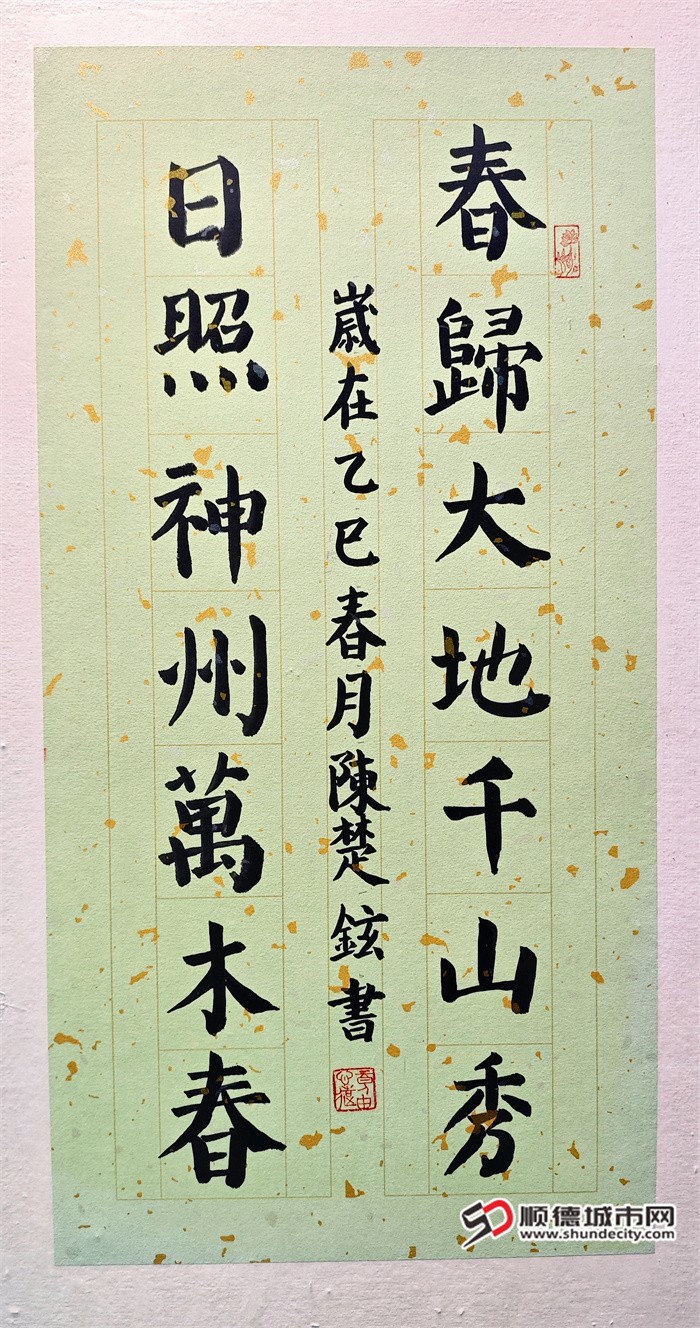 春歸大地千山秀
歲在乙巳春月陳楚鉉書
日照神州萬木春
顺德城市网
www.shundecity.com